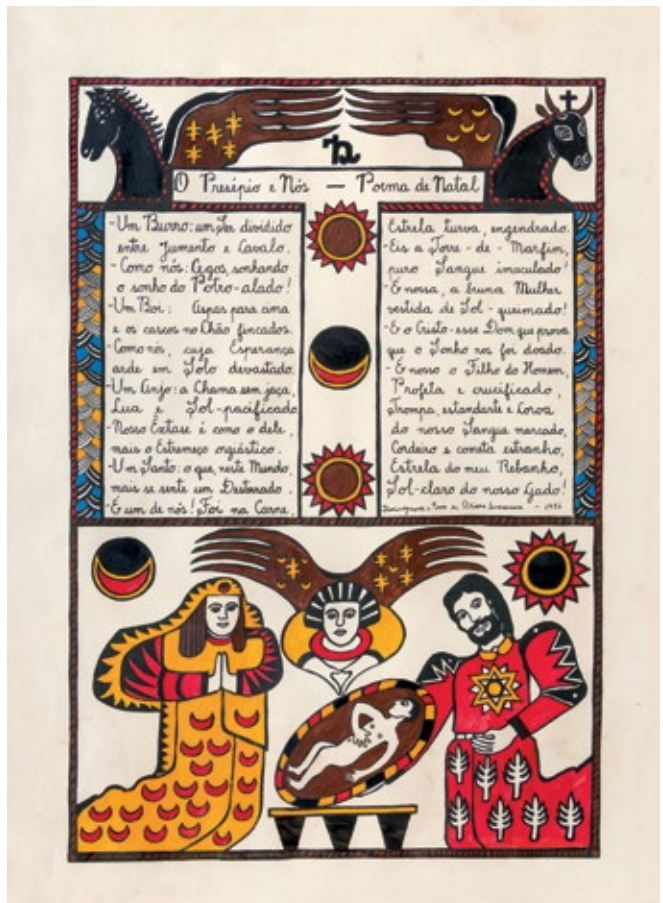 O Presépio e Nós — Poema de Natal
- Um Burro: um Ser dividido
entre Jumento e Cavalo.
- Como nós: Cegos, sonhando
o sonho do Potro-alado!
- Um Boi: Aspas para cima
e os cascos no Chão fincados.
- Como nós, cuja Esperança
arde em Solo devastado.
- Um Anjo: a Chama sem jaça,
Lua e Sol-pacificado
- Nosso Êxtase é como o dele,
mais o Estremeço orgiástico.
- Um Santo: o que, neste Mundo,
mais se sente um Desterrado.
- É um de nós! Foi na Carne,
Estrela turva, engendrado.
- Eis a Torre-de-Marfim,
puro Sangue imaculado!
- É nossa, a bruna Mulher
vestida de Sol-queimado!
- E o Cristo-esse Dom que prova
que o Sonho nos foi doado.
- É nosso o Filho do Homem,
Profeta e crucificado,
Trompa, estandarte e Coroa
do nosso Sangue mercado,
Cordeiro e cometa estranho,
Estrela do meu Rebanho,
Sol-claro do nosso Gado!
de Ariano Suassuna